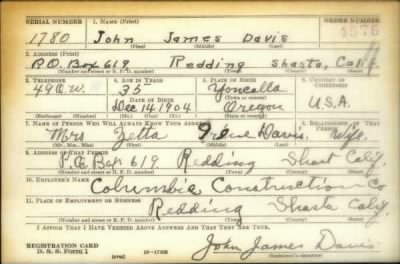 SERIAL NUMBER 1. NAME (Print) ORDER NUMBER
1780 John James Davis 1576
(First) (Middle) (Last)
2. ADDRESS (Print)
P.O. Box 619 Redding Shasta, Calif.
(Number and street or R. F. D. number) (Town) (County) (State)
3. TELEPHONE 4. AGE IN YEARS 5. PLACE OF BIRTH 6. COUNTRY OF CITIZENSHIP
49 Q.W. 35 Yoncalla
DATE OF BIRTH (Town or county)
Dec 14 1904 Oregon U.S.A.
(Mo.) (Day) (Yr.) (State or country)
7. NAME OF PERSON WHO WILL ALWAYS KNOW YOUR ADDRESS 8. RELATIONSHIP OF THAT PERSON
Mrs Zetta Irene Davis. Wife.
(Mr., Mrs., Miss) (First) (Middle) (Last)
9. ADDRESS OF THAT PERSON
P.O. Box 619 Redding Shast Calif.
(Number and street or R. F. D. number) (Town) (County) (State)
10. EMPLOYER'S NAME
Columbia Construction Co
11. PLACE OF EMPLOYMENT OR BUSINESS
Redding Shasta Calif.
(Number and street or R. F. D. number) (Town) (County) (State)
I AFFIRM THAT I HAVE VERIFIED ABOVE ANSWERS AND THAT THEY ARE TRUE.
REGISTRATION CARD
D. S. S. Form 1 John James Davis
(over) (Registrant's signature)